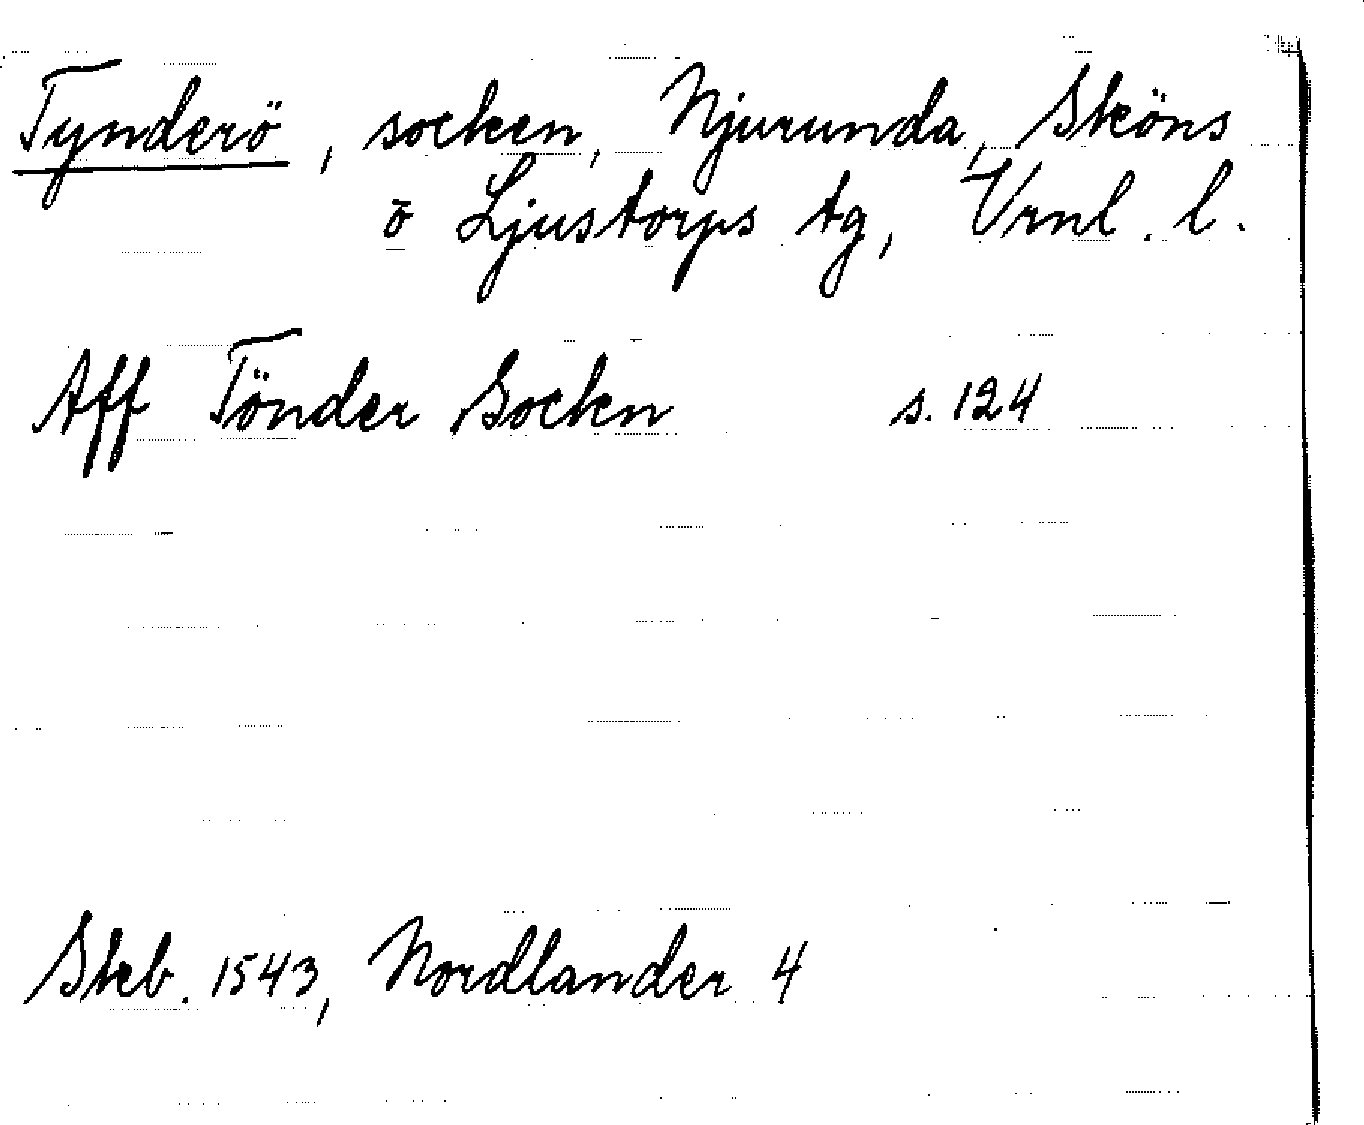 Tynderö, socken, Njurunda, Sköns
o Ljustorps tg, Vrnl. l.
Aff Tönder Sockn s. 124
Skb. 1543, Nordlander 4